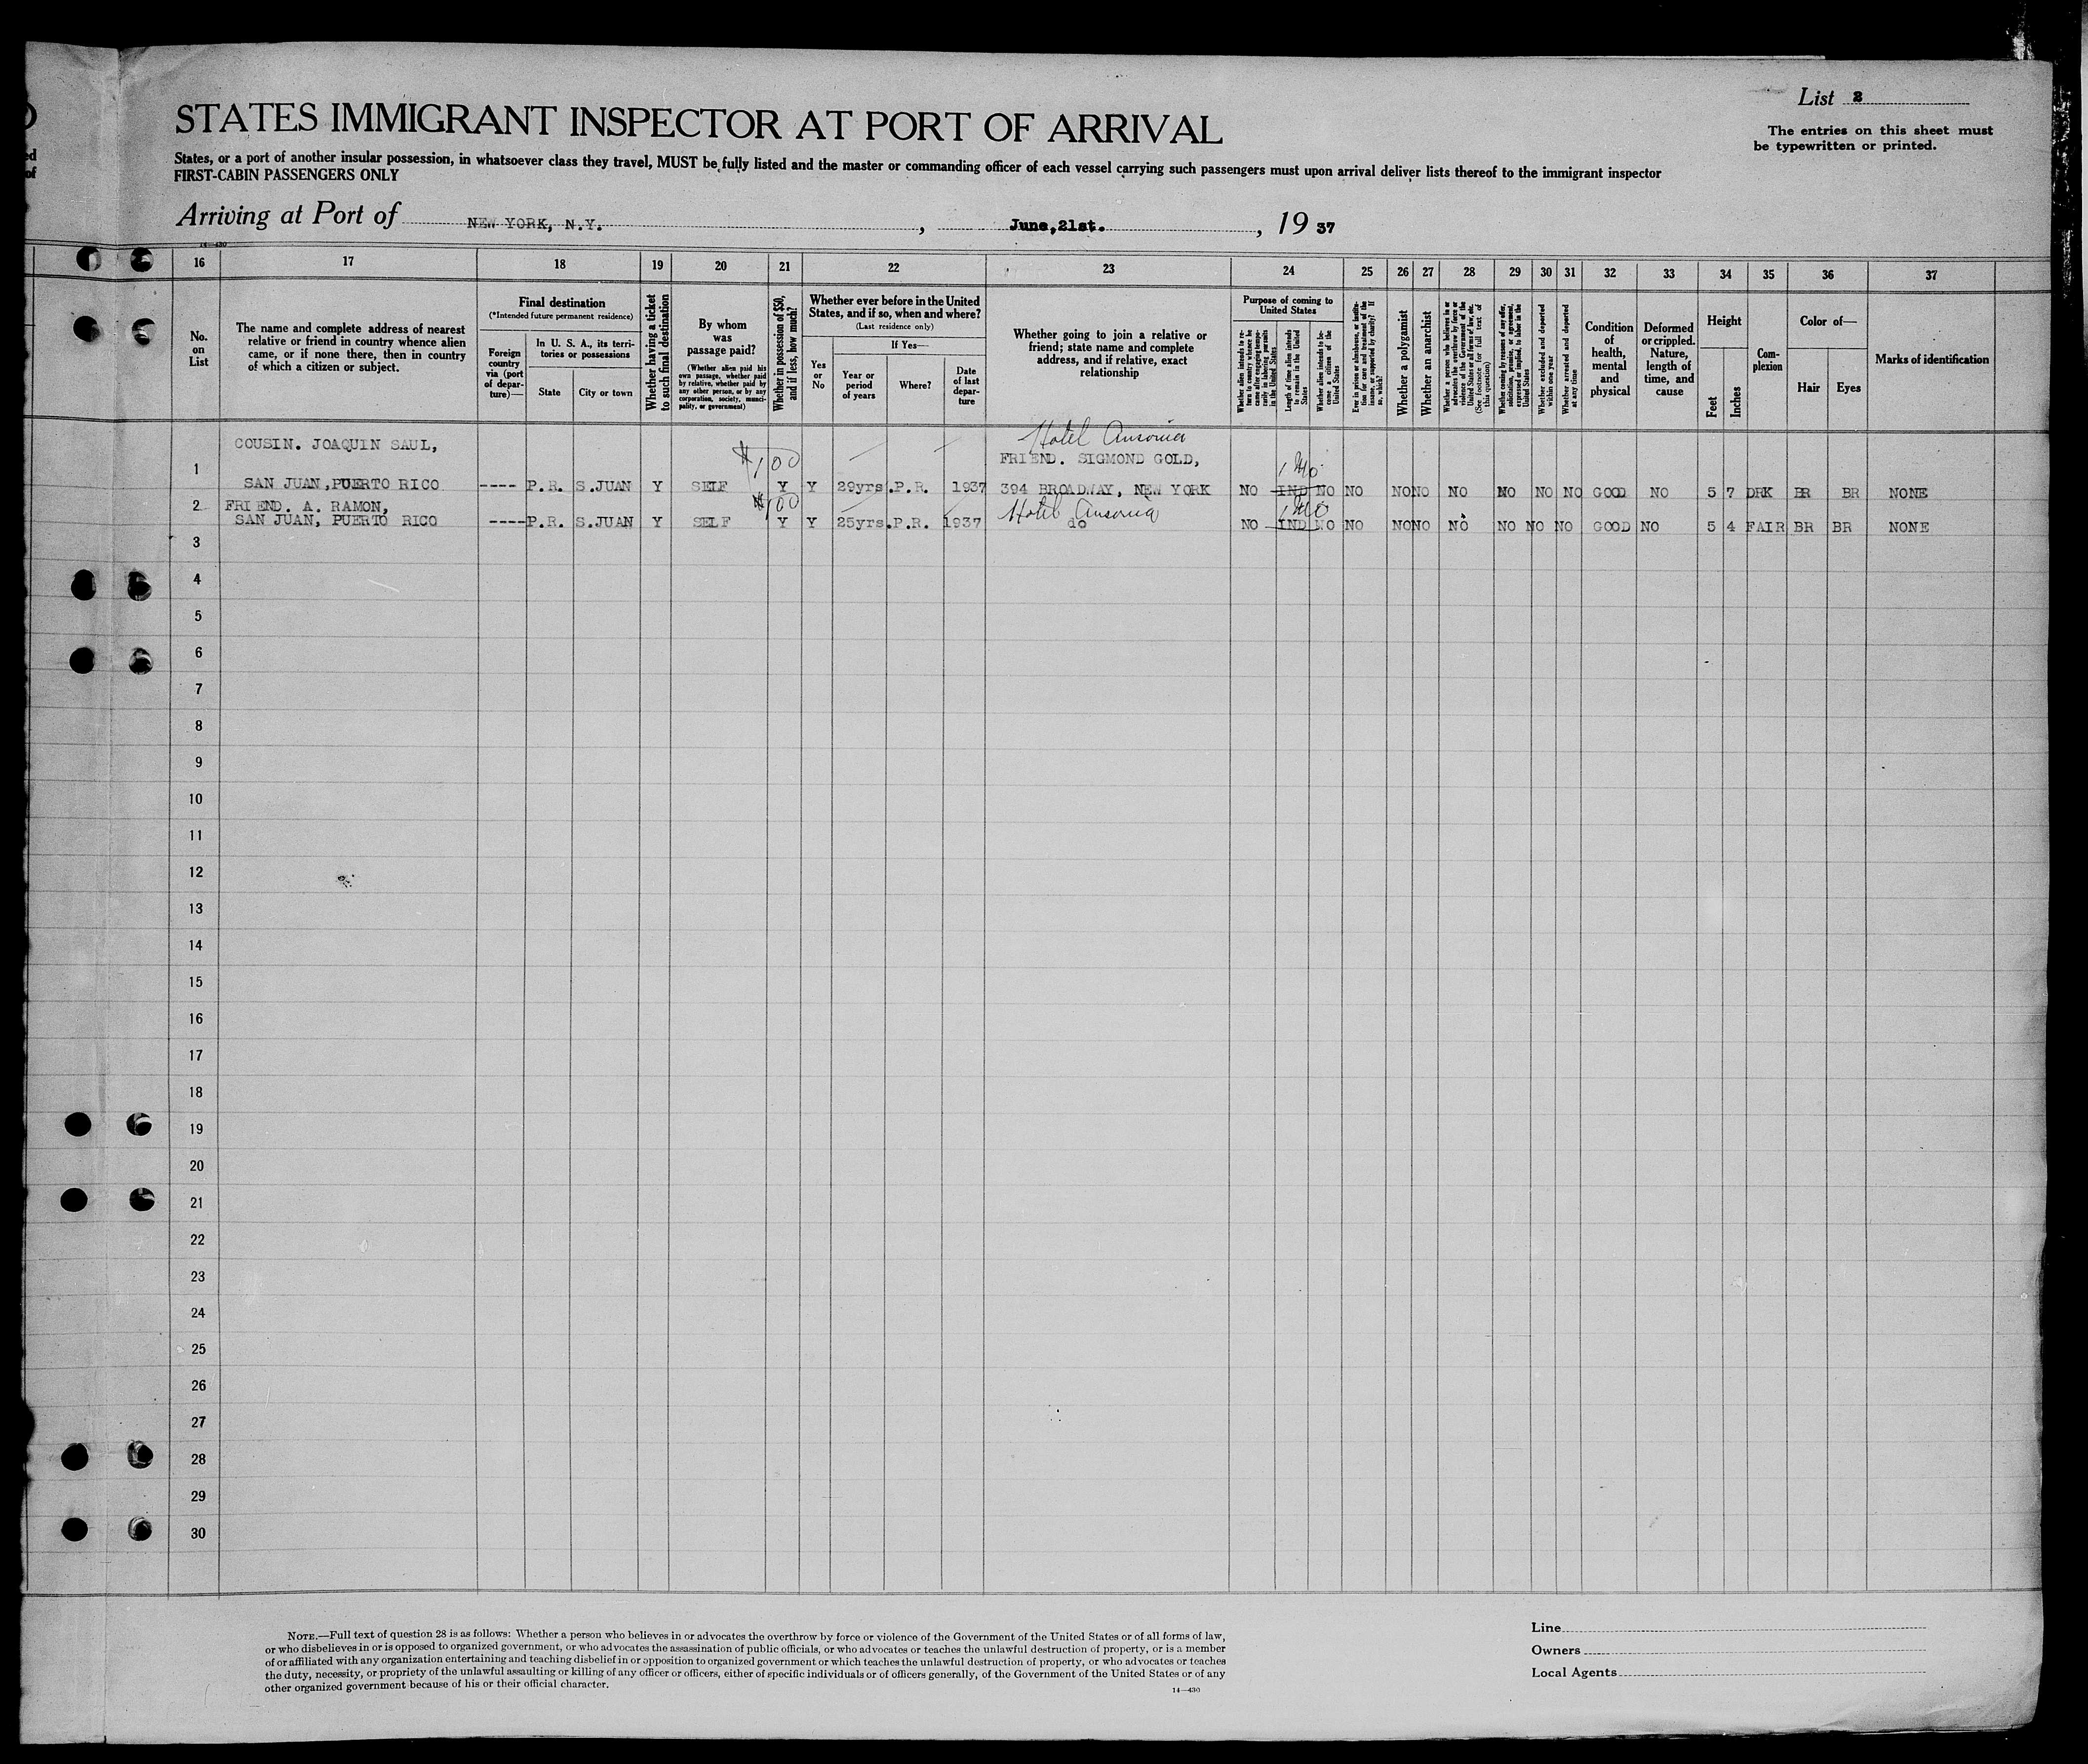 List 2
The entries on this sheet must
be typewritten or printed.
STATES IMMIGRANT INSPECTOR AT PORT OF ARRIVAL
States, or a port of another insular possession, in whatsoever class they travel, MUST be fully listed and the master or commanding officer of each vessel carrying such passengers must upon arrival deliver lists thereof to the immigrant inspector
FIRST-CABIN PASSENGERS ONLY
Arriving at Port of NEW YORK, N.Y. , June,21st. , 19 37
14—430
16 17 18 19 20 21 22 23 24 25 26 27 28 29 30 31 32 33 34 35 36 37
No.
on
List
The name and complete address of nearest
relative or friend in country whence alien
came, or if none there, then in country
of which a citizen or subject.
Final destination
(*Intended future permanent residence)
Foreign
country
via (port
of depar-
ture)—
In U. S. A., its terri-
tories or possessions
State
City or town
Whether having a ticket
to such final destination
By whom
was
passage paid?
(Whether alien paid his
own passage, whether paid
by relative, whether paid by
any other person, or by any
corporation, society, munici-
pality, or government)
Whether in possession of $50,
and if less, how much?
Whether ever before in the United
States, and if so, when and where?
(Last residence only)
Yes
or
No
If Yes—
Year or
period
of years
Where?
Date
of last
depar-
ture
Whether going to join a relative or
friend; state name and complete
address, and if relative, exact
relationship
Purpose of coming to
United States
Whether alien intends to re-
turn to country whence he
came after engaging tempo-
rarily in laboring pursuits
in the United States
Length of time alien intends
to remain in the United
States
Whether alien intends to be-
come a citizen of the
United States
Ever in prison or almshouse, or institu-
tion for care and treatment of the
insane, or supported by charity? If
so, which?
Whether a polygamist
Whether an anarchist
Whether a person who believes in or
advocates the overthrow by force or
violence of the Government of the
United States or all forms of law, etc.
(See footnote for full text of
this question)
Whether coming by reasons of any offer,
solicitation, promise, or agreement,
expressed or implied, to labor in the
United States
Whether excluded and deported
within one year
Whether arrested and deported
at any time
Condition
of
health,
mental
and
physical
Deformed
or crippled.
Nature,
length of
time, and
cause
Height
Feet
Inches
Com-
plexion
Color of—
Hair
Eyes
Marks of identification
COUSIN. JOAQUIN SAUL,
Hotel Ansonia
$100
FRIEND. SIGMOND GOLD,
1 Mo.
1 SAN JUAN,PUERTO RICO ---- P.R. S.JUAN Y SELF Y Y 29yrs.P.R. 1937 394 BROADWAY, NEW YORK NO IND NO NO NO NO NO NO NO NO GOOD NO 5 7 DRK BR BR NONE
2 FRIEND. A. RAMON,
$100
Hotel Ansonia
1 Mo
SAN JUAN, PUERTO RICO ---- P.R. S.JUAN Y SELF Y Y 25yrs.P.R. 1937 do NO IND NO NO NO NO NO NO NO NO GOOD NO 5 4 FAIR BR BR NONE
3
4
5
6
7
8
9
10
11
12
13
14
15
16
17
18
19
20
21
22
23
24
25
26
27
28
29
30
NOTE.—Full text of question 28 is as follows: Whether a person who believes in or advocates the overthrow by force or violence of the Government of the United States or of all forms of law,
or who disbelieves in or is opposed to organized government, or who advocates the assassination of public officials, or who advocates or teaches the unlawful destruction of property, or is a member
of or affiliated with any organization entertaining and teaching disbelief in or opposition to organized government or which teaches the unlawful destruction of property, or who advocates or teaches
the duty, necessity, or propriety of the unlawful assaulting or killing of any officer or officers, either of specific individuals or of officers generally, of the Government of the United States or of any
other organized government because of his or their official character.
14—430
Line
Owners
Local Agents